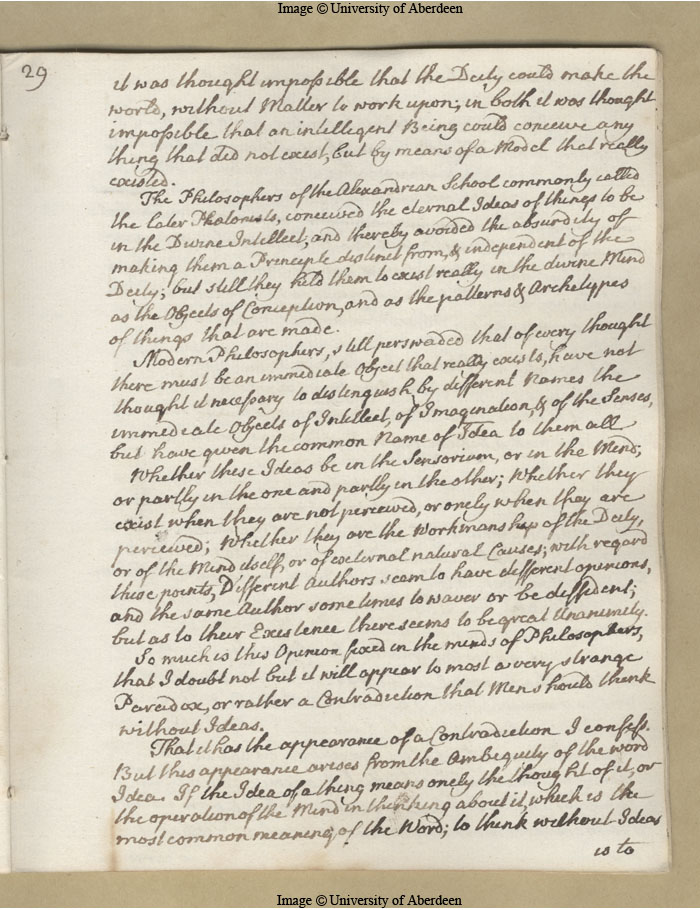 Image © University of Aberdeen
29
it was thought impossible that the Deity could make the
world, without Matter to work upon; in both it was thought
impossible that an intelligent Being could conceive any
thing that did not exist, but by means of a Model that really
existed.
The Philosophers of the Alexandrean School commonly called
the later Platonists, conceived the eternal Ideas of things to be
in the Divine Intellect, and thereby avoided the absurdity of
making them a Principle distinct from, & independent of the
Deity; but still they held them to exist really in the divine Mind
as the Objects of Conception, and as the patterns & Archetypes
of things that are made.
Modern Philosophers, still perswaded that of every thought
there must be an immediate Object that really exists, have not
thought it necessary to distinguish by different Names the
immediate Objects of Intellect, of Imagination, & of the Senses,
but have given the common Name of Idea to them all
Whether these Ideas be in the Sensorium, or in the Mind;
or partly in the one and partly in the other; Whether they
exist when they are not perceived, or onely when they are
perceived; Whether they are the Workmanship of the Deity,
or of the Mind itself, or of external natural Causes; with regard
these points, Different Authors seem to have different opinions,
and the same Author sometimes to waver or be diffident;
but as to their Existence there seems to be great Unanimity.
So much is this Opinion fixed in the minds of Philosophers,
that I doubt not but it will appear to most a very strange
Paradox, or rather a Contradiction that Men should think
without Ideas.
That it has the appearance of a Contradiction I confess.
But this appearance arises from the Ambiguity of the word
Idea. If the Idea of a thing means onely the thought of it, or
the operation of the Mind in thinking about it, which is the
most common meaning of the Word; to think without Ideas
is to
Image © University of Aberdeen